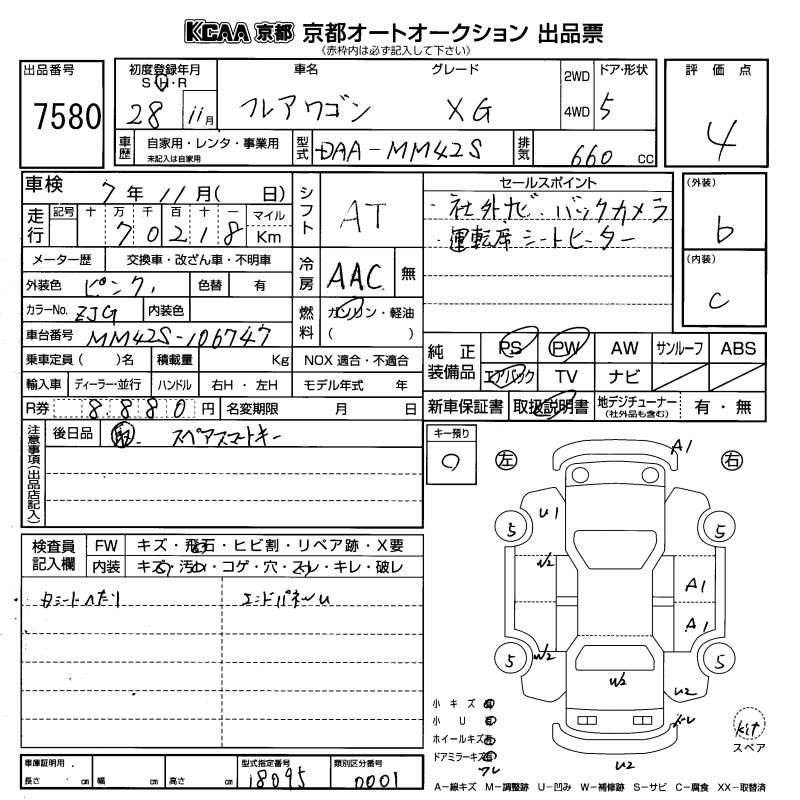 KCAA 京都 京都オートオークション 出品票
(赤枠内は必ず記入して下さい)
出品番号
7580
初度登録年月
S・H・R
28 11月
車名
フレアワゴン
グレード
XG
2WD
4WD
ドア・形状
5
評価点
4
車歴
自家用・レンタ・事業用
未記入は自家用
型式
DAA-MM42S
排気
660 CC
車検 7年11月( 日)
走行
記号 十 万 千 百 十 一 マイル
7 0 2 1 8 Km
シフト
AT
メーター歴 交換車・改ざん車・不明車
外装色 ピンク 色替 有
冷房
AAC 無
カラーNo. ZJG 内装色
車台番号 MM42S-106747
燃料
ガソリン・軽油
( )
乗車定員( )名 積載量 Kg NOX適合・不適合
輸入車 ディーラー・並行 ハンドル 右H・左H モデル年式 年
R券 8,880円 名変期限 月 日
セールスポイント
・社外ナビ・バックカメラ
・運転席シートヒーター
(外装)
b
(内装)
C
純正装備品
PS PW AW サンルーフ ABS
エアバック TV ナビ
新車保証書 取扱説明書 地デジチューナー(社外品も含む) 有・無
注意事項(出品店記入)
後日品 取 スペアスマートキー
キー預り
0
左 右
A1
U1
5 5
W2
A1
A1
5 5
W2
W2
U2
U2
検査員記入欄
FW キズ・飛石・ヒビ割・リペア跡・X要
内装 キズ・汚レ・コゲ・穴・スレ・キレ・破レ
Dシートヘたり エンドパネルU
小キズ
小U
ホイールキズ
ドアミラーキズ
kit
スペア
車庫証明用
長さ cm 幅 cm 高さ cm
型式指定番号
18095
類別区分番号
0001
A-線キズ M-調整跡 U-凹み W-補修跡 S-サビ C-腐食 XX-取替済